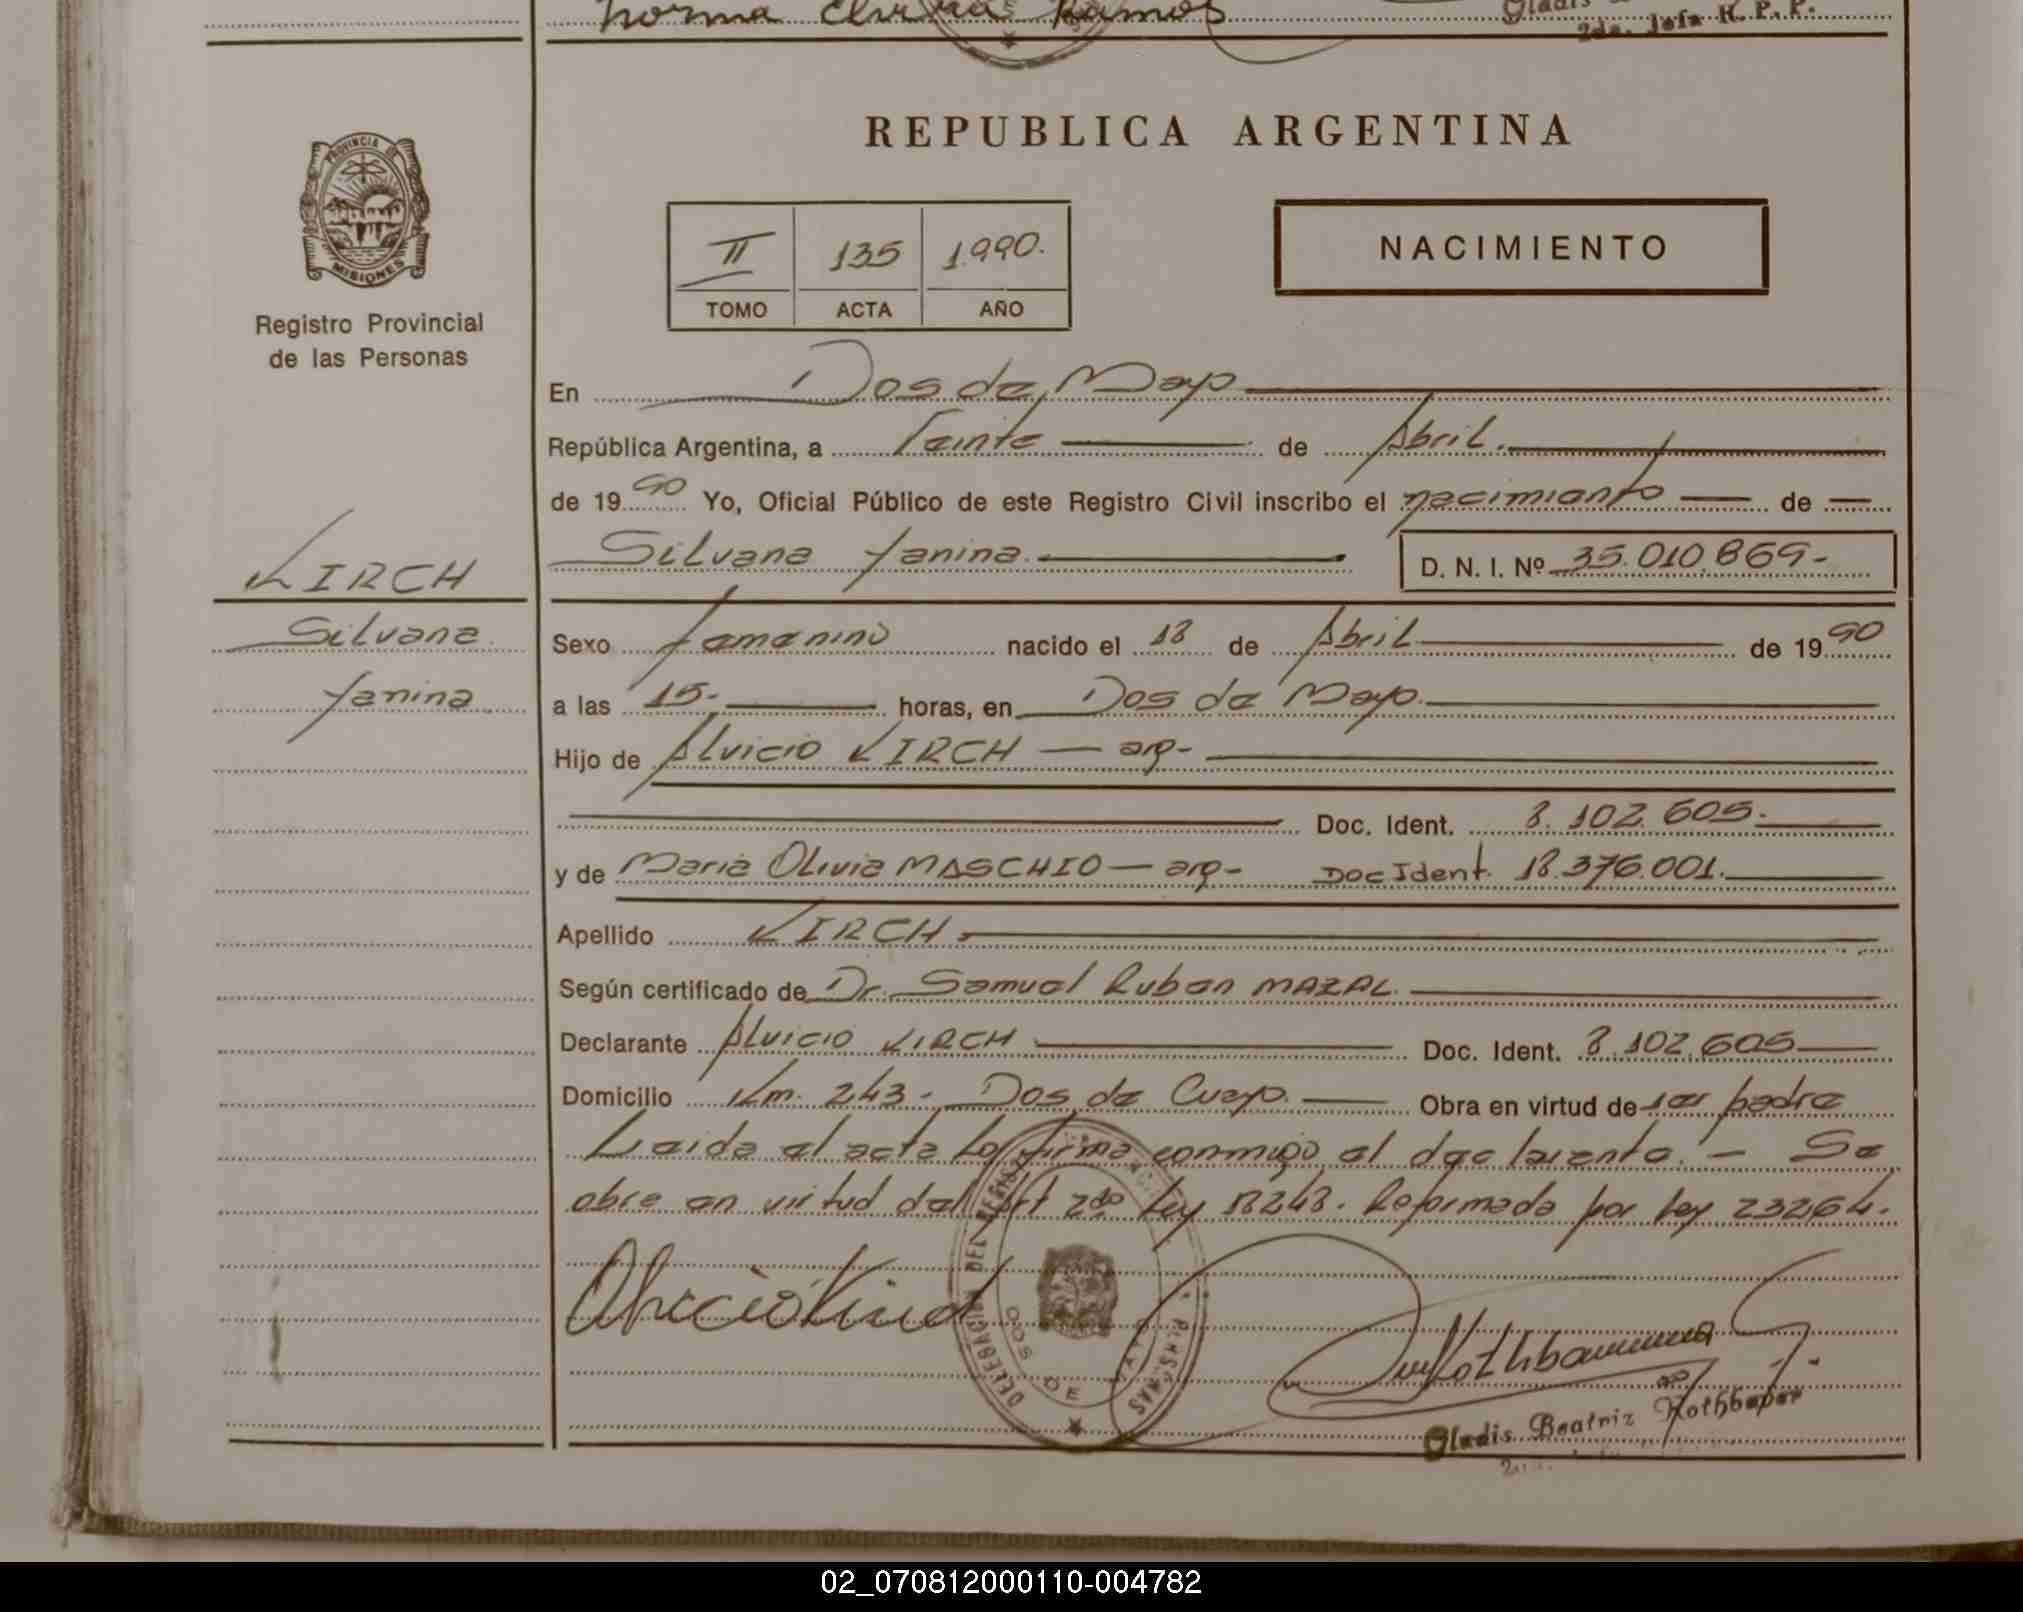 Norma Elvira Ramos
Gladis
2da. Jefa R. P. P.
PROVINCIA DE
MISIONES
Registro Provincial
de las Personas
REPUBLICA ARGENTINA
II 135 1.990.
TOMO ACTA AÑO
NACIMIENTO
En Dos de Mayo
República Argentina, a Veinte de Abril.
de 1990 Yo, Oficial Público de este Registro Civil inscribo el nacimiento de
Silvana Yanina. D. N. I. Nº 35.010.869-
KIRCH
Silvana
Yanina
Sexo Femenino nacido el 18 de Abril de 1990
a las 15. horas, en Dos de Mayo.
Hijo de Alvicio KIRCH — arg-
Doc. Ident. 8.102.605.
y de Maria Olivia MASCHIO — arg- Doc Ident. 18.376.001.
Apellido KIRCH.
Según certificado de Dr. Samuel Ruben MAZAL.
Declarante Alvicio KIRCH Doc. Ident. 8.102.605
Domicilio Km. 243 - Dos de Mayo. Obra en virtud de ser padre
Leida el acta la firma conmigo el declarante. - Se
obre en virtud del Art 2do Ley 18248. Reformada por Ley 23264.
Alvicio Kirch
DELEGACION DEL REGISTRO PERSONAS
DOS DE MAYO
Gladis Beatriz Rothbauer
02_070812000110-004782